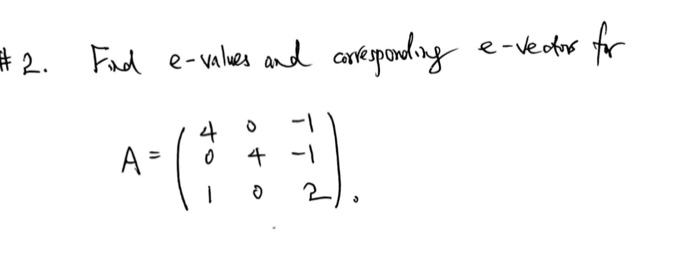 #2. Find e-values and corresponding e-vectors for
A = ( 4 0 -1
0 4 -1
1 0 2 ).